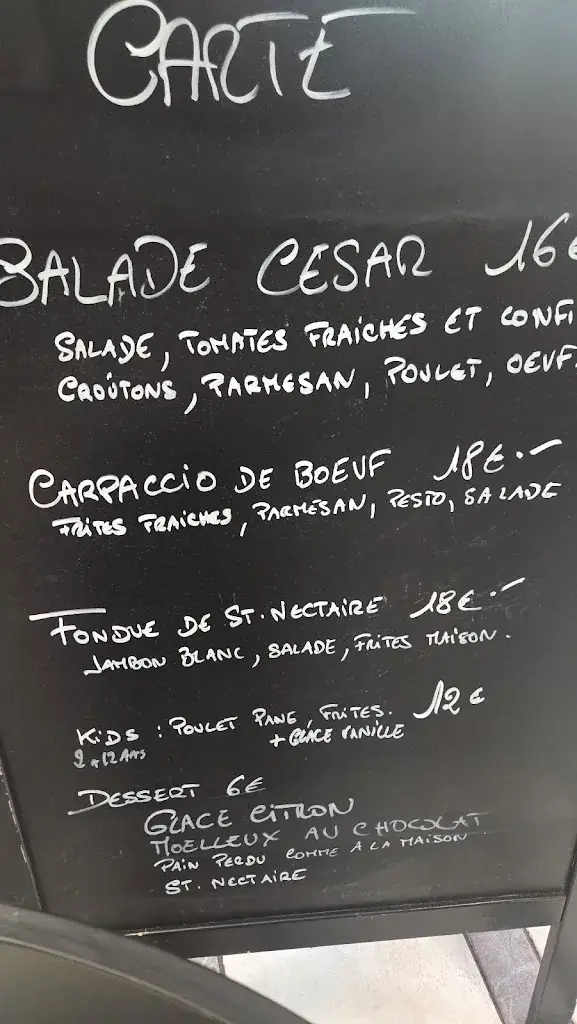 CARTE
SALADE CESAR 16€
SALADE, TOMATES FRAICHES ET CONFI
CROÛTONS, PARMESAN, POULET, OEUF.
CARPACCIO DE BOEUF 18€.-
FRITES FRAICHES, PARMESAN, PESTO, SALADE
FONDUE DE ST. NECTAIRE 18€.-
JAMBON BLANC, SALADE, FRITES MAISON.
KIDS : POULET PANE, FRITES. 12€
2 à 12 ANS + GLACE VANILLE
DESSERT 6€
GLACE CITRON
MOELLEUX AU CHOCOLAT
PAIN PERDU COMME A LA MAISON
ST. NECTAIRE